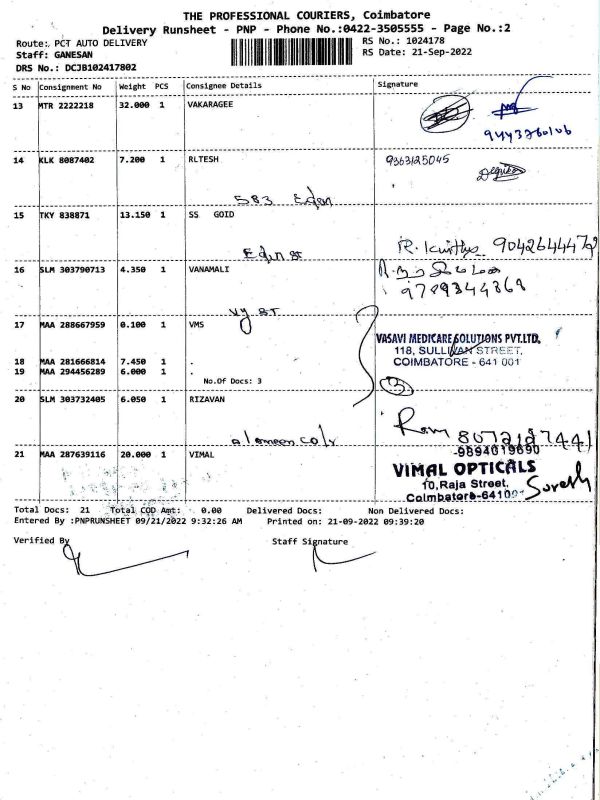 THE PROFESSIONAL COURIERS, Coimbatore
Delivery Runsheet - PNP - Phone No.:0422-3505555 - Page No.:2
Route: PCT AUTO DELIVERY
RS No.: 1024178
Staff: GANESAN
RS Date: 21-Sep-2022
DRS No.: DCJB102417802
S No Consignment No Weight PCS Consignee Details Signature
13 MTR 2222218 32.000 1 VAKARAGEE
9443260106
14 KLK 8087402 7.200 1 RLTESH 9363125045
583 Eden
15 TKY 838871 13.150 1 SS GOID
Eden st R. 9042644472
16 SLM 303790713 4.350 1 VANAMALI
9789344868
Vy ST
17 MAA 288667959 0.100 1 VMS
VASAVI MEDICARE SOLUTIONS PVT.LTD,
118, SULLIVAN STREET,
COIMBATORE - 641 001
18 MAA 281666814 7.450 1 .
19 MAA 294456289 6.000 1 .
No.Of Docs: 3 3
20 SLM 303732405 6.050 1 RIZAVAN
Ram
alameen colr
21 MAA 287639116 20.000 1 VIMAL
-9894019690
VIMAL OPTICALS
10,Raja Street,
Coimbatore-641001
Suresh
Total Docs: 21 Total COD Amt: 0.00 Delivered Docs: Non Delivered Docs:
Entered By :PNPRUNSHEET 09/21/2022 9:32:26 AM Printed on: 21-09-2022 09:39:20
Verified By Staff Signature